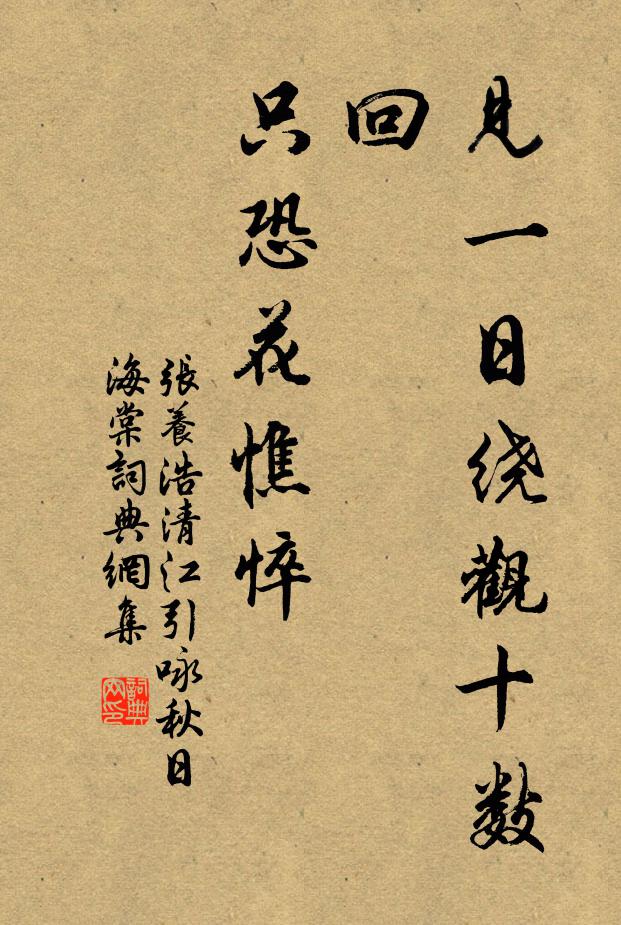 見一日绕觀十數
回
只恐花憔悴
張養浩清江引咏秋日
海棠詞典網集
詞典
网印